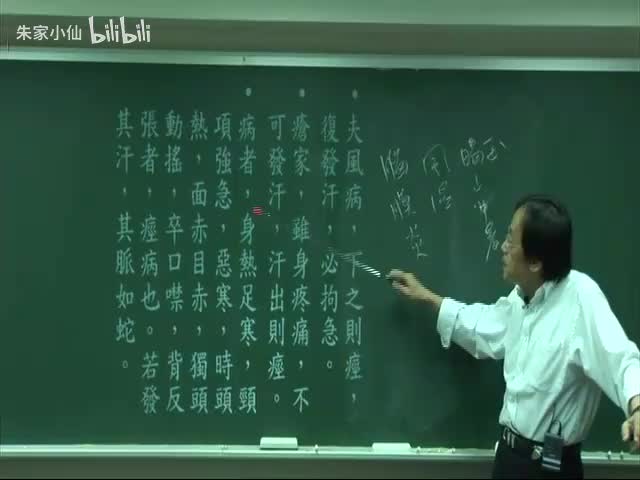 朱家小仙 bilibili
夫風病，下之則痙，
復發汗，必拘急。
瘡家，雖身疼痛，不
可發汗，汗出則痙。
病者，身熱足寒，頸
項強急，惡寒，時頭
熱，面赤目赤，獨頭
動搖，卒口噤，背反
張者，痙病也。若發
其汗，其脈如蛇。
腦膜炎